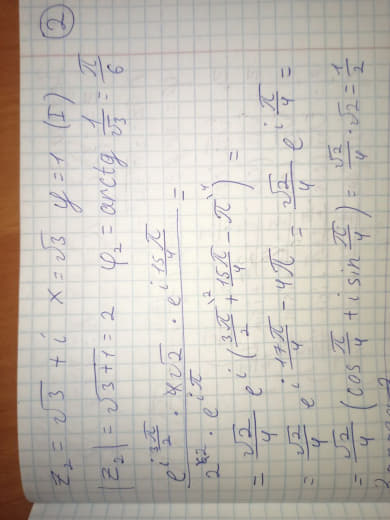 ②
z₂ = √3 + i x = √3 y = 1 (I)
|z₂| = √(3+1) = 2 φ₂ = arctg 1/√3 = π/6
(e^(i 3π/2) · 4√2 · e^(i 15π/4)) / ( · e^(iπ)) =
= √2/4 e^i (3π/2 + 15π/4 − π) =
= √2/4 e^(i 17π/4 − 4π) = √2/4 e^(i π/4) =
= √2/4 (cos π/4 + i sin π/4) = √2/4 · √2 = 1/2